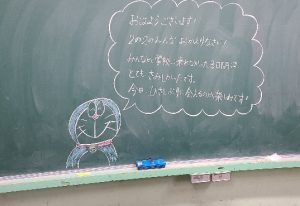 おはようございます！
2の2のみんな おかえりなさい！
みんなが学校に来れなかった3日間は
とてもさみしかったです。
今日、ひさしぶりに会えるのが楽しみです！